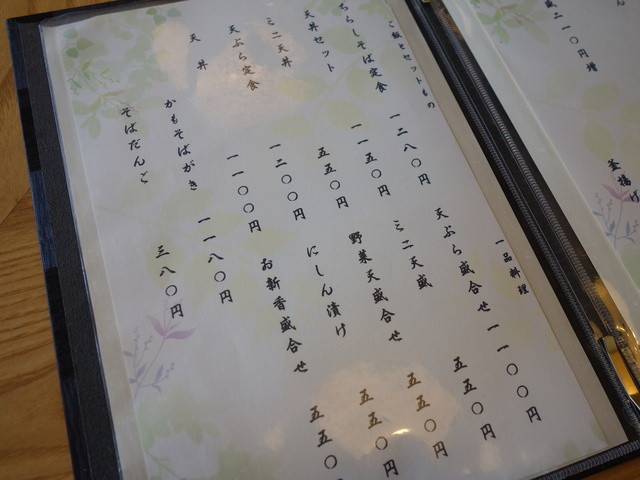 釜揚げ
盛二一〇円増
ご飯とセットもの
ちらしそば定食 一二八〇円
天丼セット 一一五〇円
ミニ天丼 五五〇円
天ぷら定食 一二〇〇円
天丼 一一〇〇円
一品料理
天ぷら盛合せ 一一〇〇円
ミニ天盛 五五〇円
野菜天盛合せ 五五〇円
にしん漬け 五五〇円
お新香盛合せ 五五〇
かもそばがき 一一八〇円
そばだんご 三八〇円